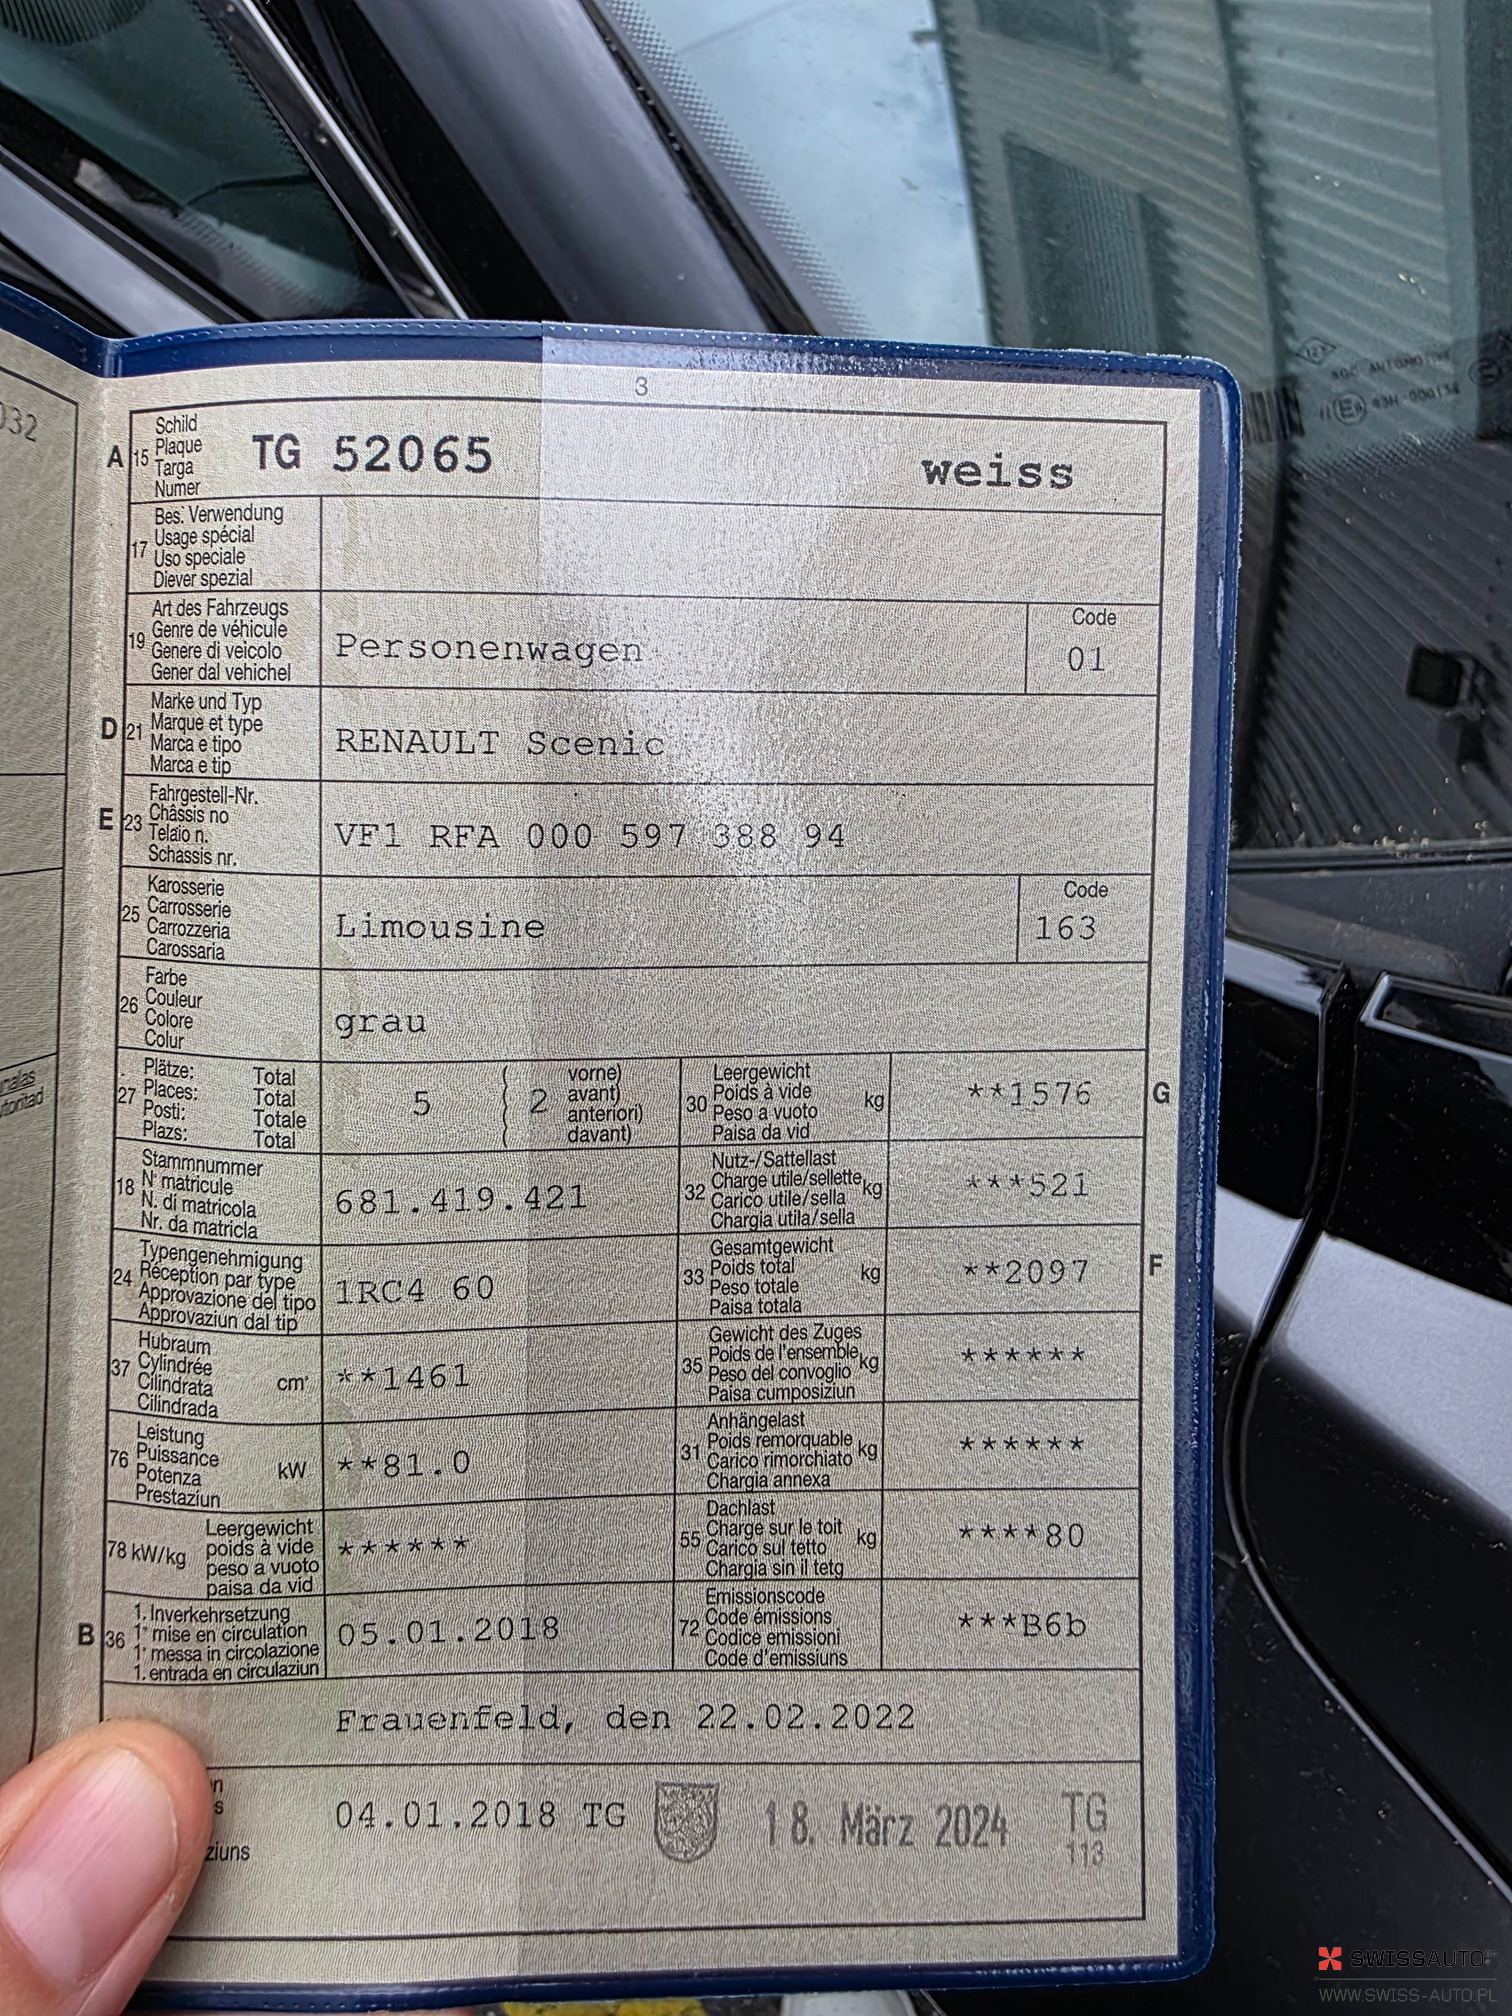 032
3
A 15 Schild
Plaque
Targa
Numer
TG 52065 weiss
17 Bes. Verwendung
Usage spécial
Uso speciale
Diever spezial
19 Art des Fahrzeugs
Genre de véhicule
Genere di veicolo
Gener dal vehichel
Personenwagen
Code
01
D 21 Marke und Typ
Marque et type
Marca e tipo
Marca e tip
RENAULT Scenic
E 23 Fahrgestell-Nr.
Châssis no
Telaio n.
Schassis nr.
VF1 RFA 000 597 388 94
25 Karosserie
Carrosserie
Carrozzeria
Carossaria
Limousine
Code
163
26 Farbe
Couleur
Colore
Colur
grau
27 Plätze: Total
Places: Total
Posti: Totale
Plazs: Total
5 2
vorne)
avant)
anteriori)
davant)
30 Leergewicht
Poids à vide
Peso a vuoto
Paisa da vid
kg
**1576
G
18 Stammnummer
N° matricule
N. di matricola
Nr. da matricla
681.419.421
32 Nutz-/Sattellast
Charge utile/sellette
Carico utile/sella
Chargia utila/sella
kg
***521
24 Typengenehmigung
Réception par type
Approvazione del tipo
Approvaziun dal tip
1RC4 60
33 Gesamtgewicht
Poids total
Peso totale
Paisa totala
kg
**2097
F
37 Hubraum
Cylindrée
Cilindrata
Cilindrada
cm³
**1461
35 Gewicht des Zuges
Poids de l'ensemble
Peso del convoglio
Paisa cumposiziun
kg
******
76 Leistung
Puissance
Potenza
Prestaziun
kW
**81.0
31 Anhängelast
Poids remorquable
Carico rimorchiato
Chargia annexa
kg
******
78 kW/kg
Leergewicht
poids à vide
peso a vuoto
paisa da vid
******
55 Dachlast
Charge sur le toit
Carico sul tetto
Chargia sin il tetg
kg
****80
B 36 1. Inverkehrsetzung
1° mise en circulation
1° messa in circolazione
1. entrada en circulaziun
05.01.2018
72 Emissionscode
Code émissions
Codice emissioni
Code d'emissiuns
***B6b
Frauenfeld, den 22.02.2022
04.01.2018 TG
18. März 2024 TG
113
ziuns
SWISSAUTO
WWW.SWISS-AUTO.PL